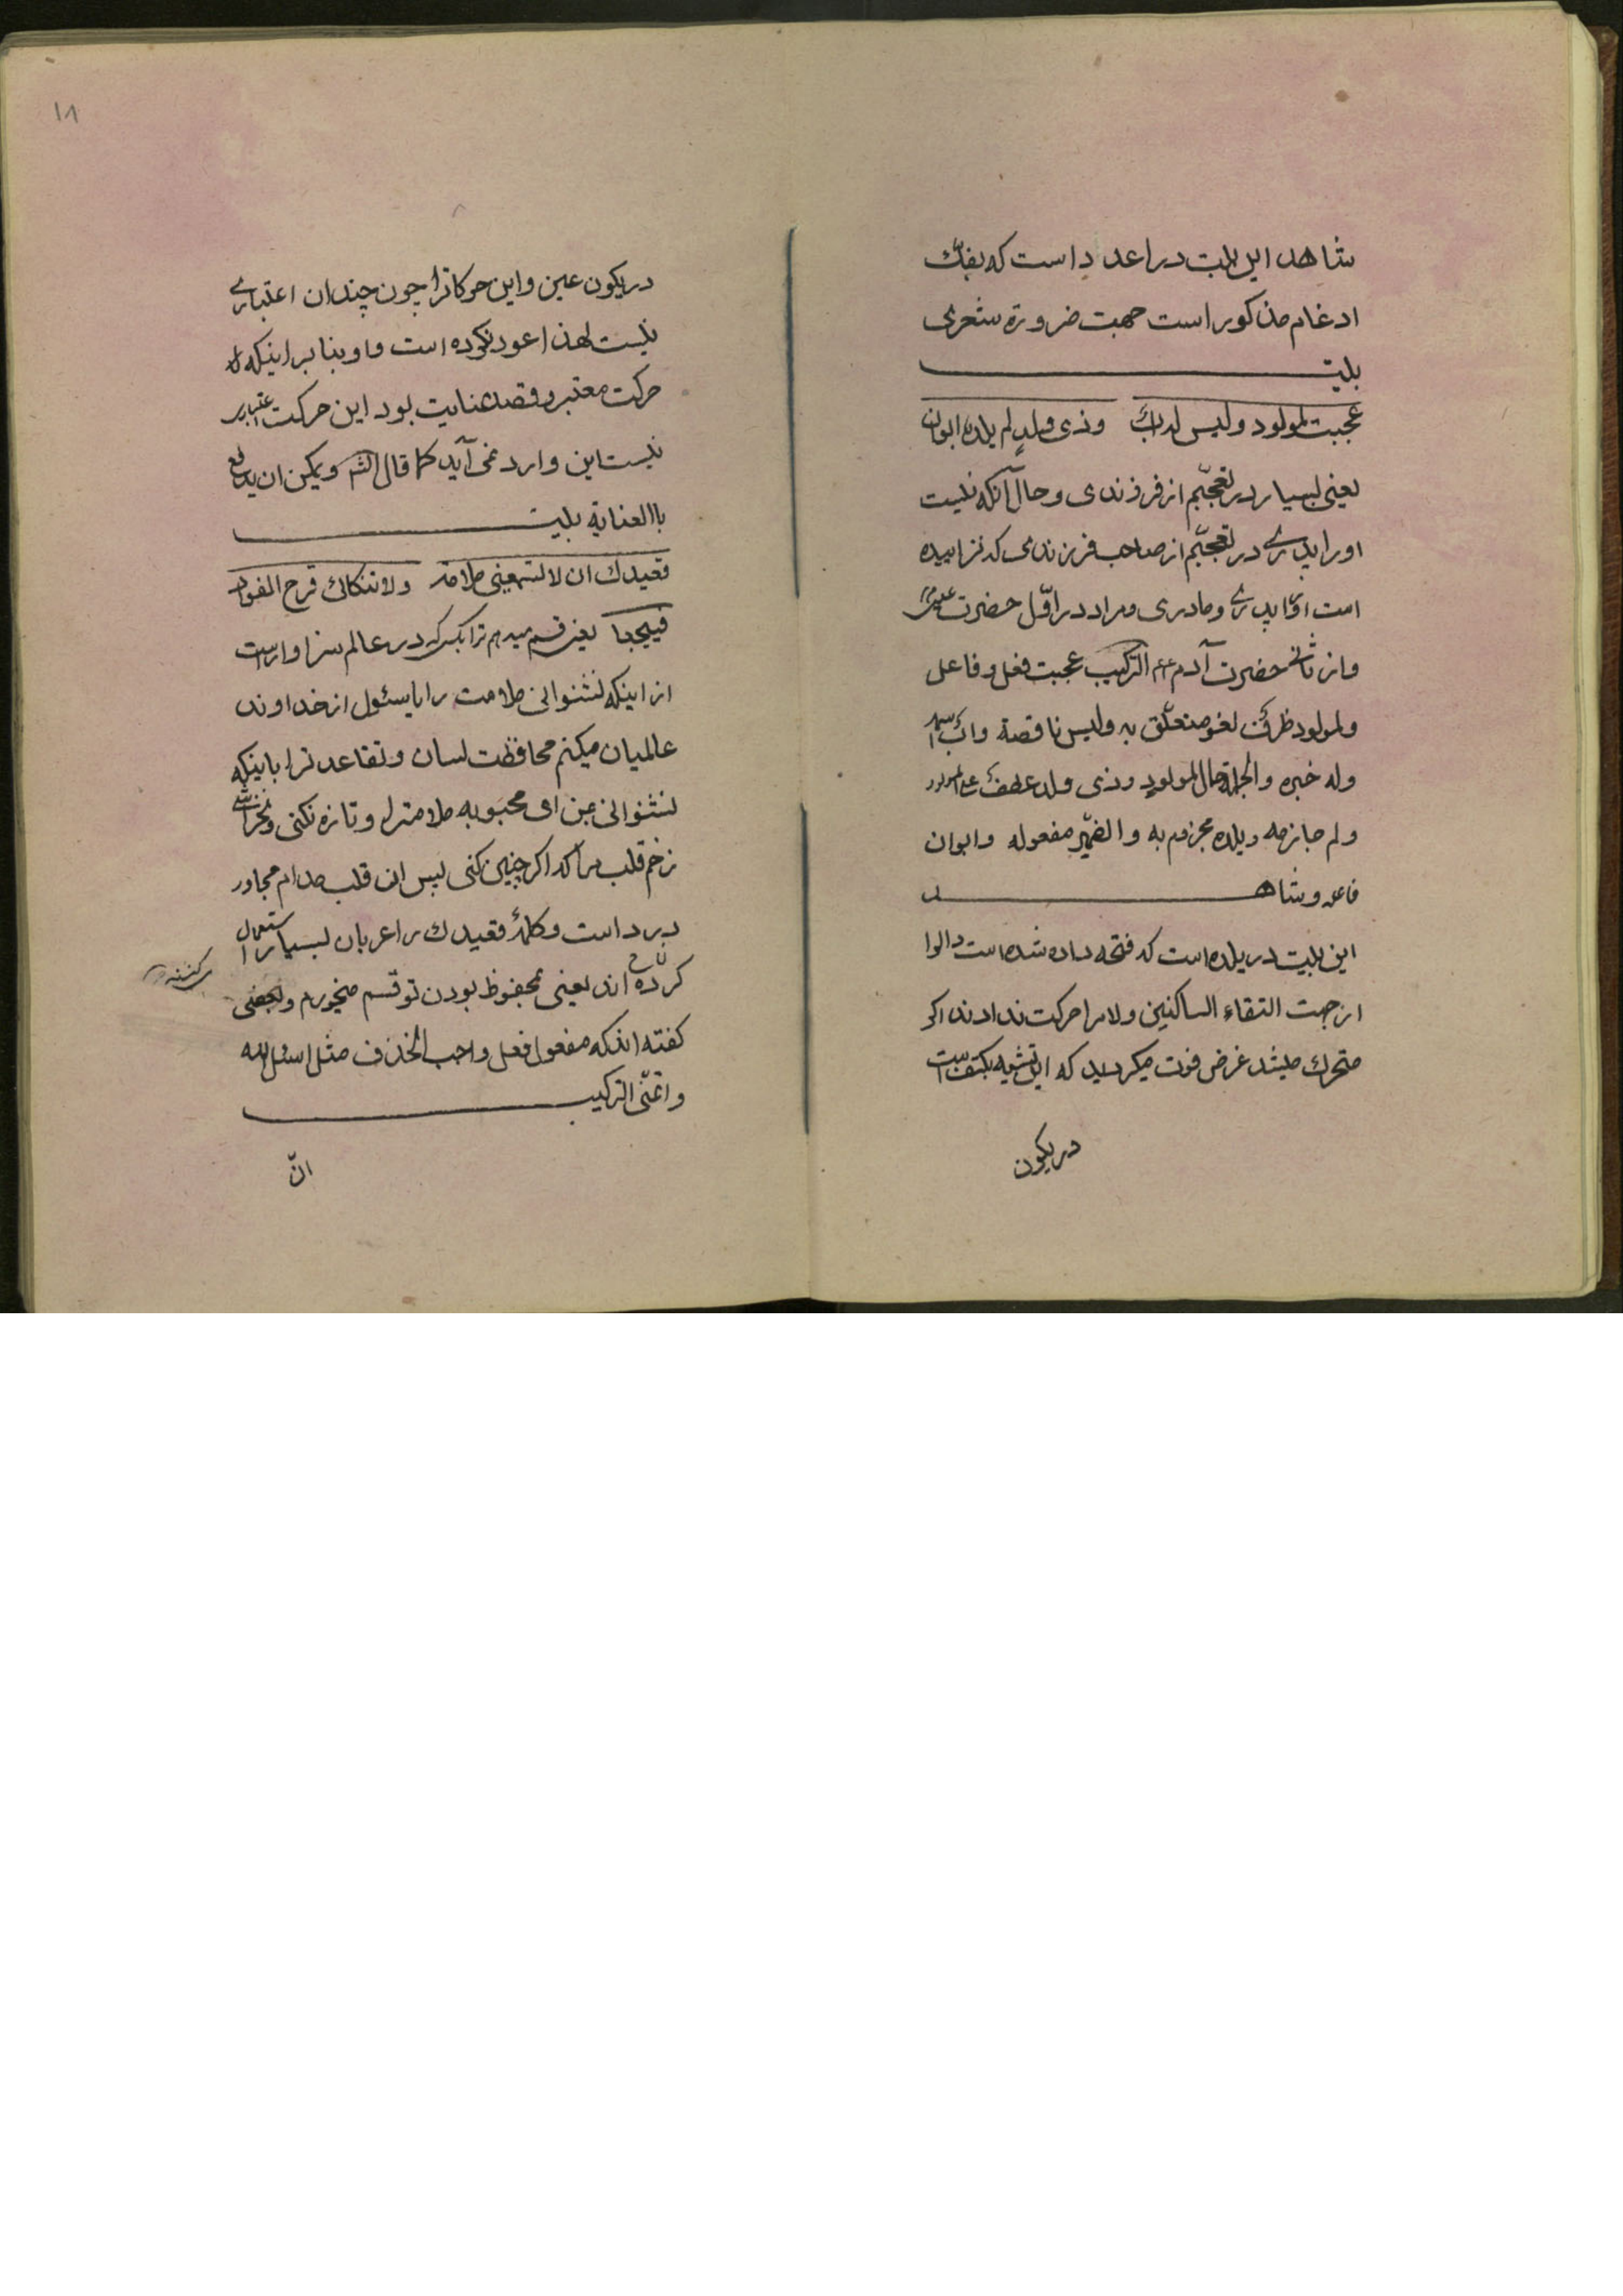 شاهد این بیت در اعدد است که بفک
ادغام مذکور است جهت ضرورة شعری
بیت
عجبت لمولود ولیس له اب وذی ولد لم یلده ابوان
یعنی بسیار در تعجبم از فرزندی و حال آنکه نیست
او را پدری در تعجبم از صاحب فرزندی که نزاییده
است او را پدری و مادری و مراد در اوّل حضرت عیسی
و از ثانی حضرت آدم الترکیب عجبت فعل و فاعل
ولمولود ظرف لغو متعلّق به ولیس ناقصة واب اسمها
وله خبره والجملة حال المولود وذی ولد عطف علی المولود
ولم جازمه ویلده مجزوم به والضمیر مفعوله وابوان
فاعله وشاهد
این بیت در یلده است که فتحه داده شده است دال او
از جهت التقاء الساکنین ولام را حرکت ندادند اگر
متحرک میشد غرض فوت میگردید که این تشبیه بکتف است
در یکون
۱۸
در یکون عین و این حرکات را چون چندان اعتباری
نیست لهذا عود نکرده است واو بنا بر اینکه
حرکت معتبر وقصد عنایت بود این حرکت اعتبار
نیست این وارد نمی آید کما قال الشم ویمکن ان یدفع
باالعنایه بیت
قعیدک ان لا تسمعینی ملامة ولا تنکائ قرح الفواد
فییجعا یعنی قسم میدهم ترا بکسی که در عالم سزاوار است
از اینکه نشنوانی ملامت را یا سئول از خداوند
عالمیان میکنم محافظت لسان وتقاعد ترا باینکه
نشنوانی بمن ای محبوبه ملامترا وتازه نکنی و نخراشی
زخم قلب مرا که اگر چنین کنی پس ان قلب مدام مجاور
درد است وکلمهٔ قعیدک را عربان بسیار استعمال
کرده اند یعنی بمحفوظ بودن تو قسم میخورم وبعضی
گفته اند که مفعول فعل واجب الحذف مثل اسئل الله
واتمنّی الترکیب
انّ